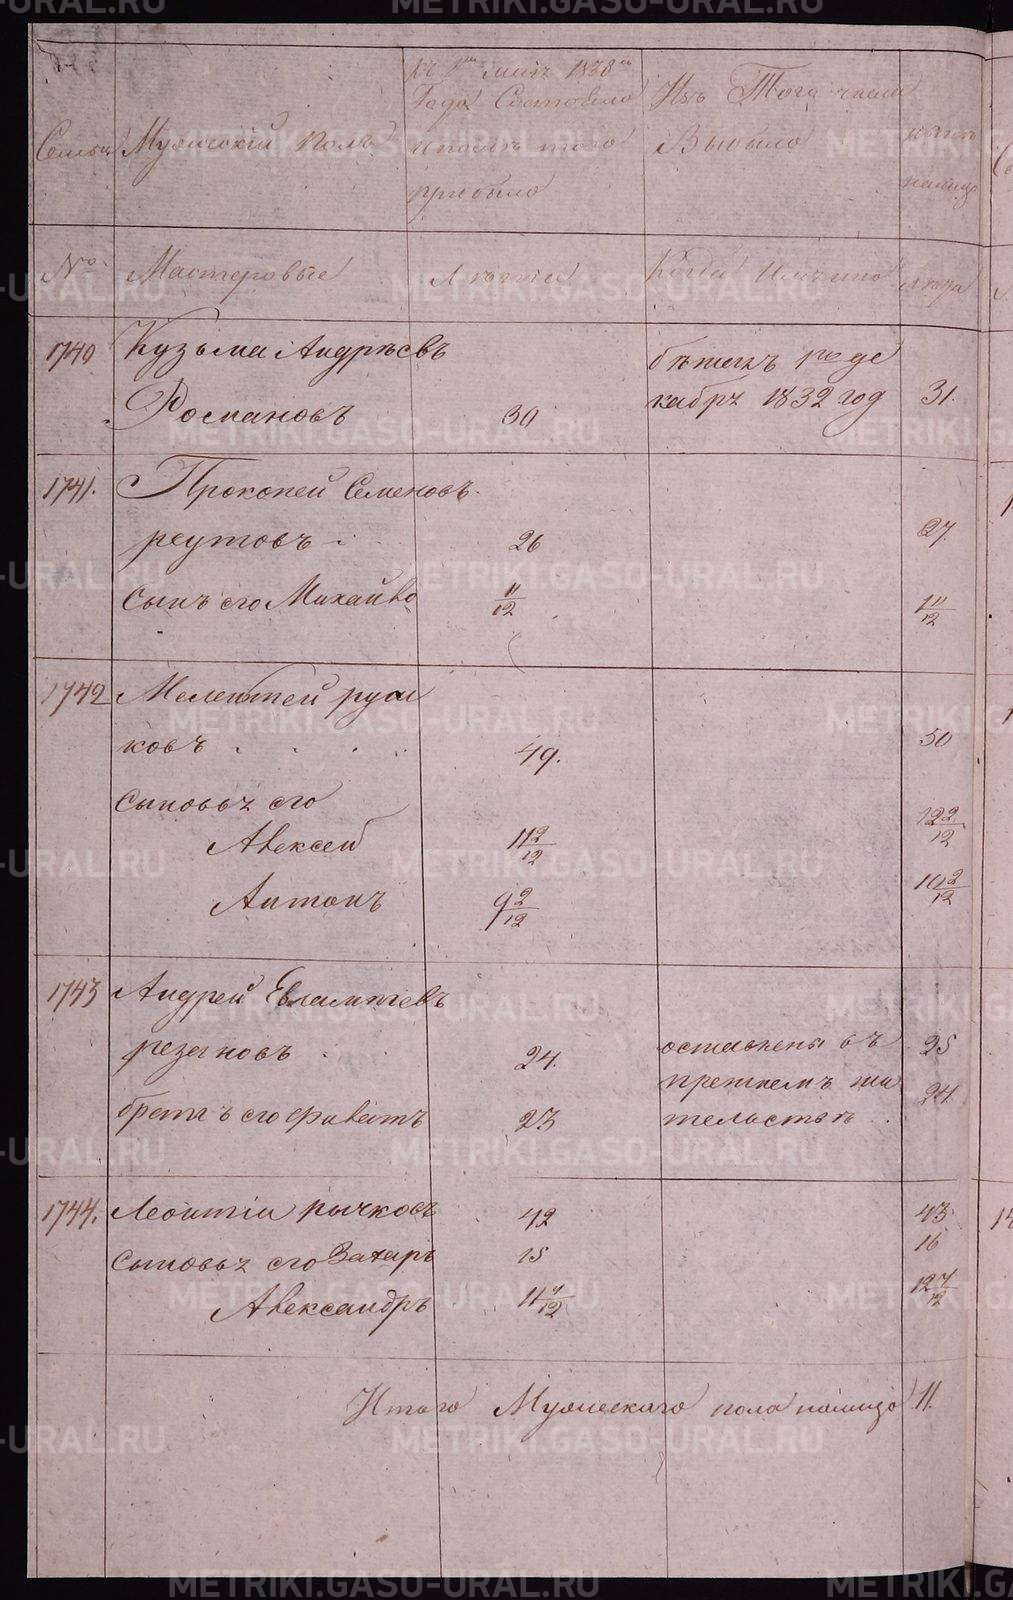 Семьи
Мужскій Полъ
Къ 1му маія 1838го
Года Состояло
и послѣ того
прибыло
Изъ Того числа
Выбыло
налицо
№
Мастеровые
Лѣта
Когда Именно
лѣта
1740
Кузьма Андрѣевъ
бѣжалъ
Романовъ
30
1832 год
31.
1741.
Прокопей Семеновъ
реутовъ
26
27.
Сынъ его Михайло
11/12
1 11/12
1742
Мелентей
ковъ
49.
50
Сыновья его
Алексей
11 2/12
12 2/12
Антонъ
9 2/12
10 2/12
1743
Андрей Евлампіевъ
резановъ
24.
оставлены въ
25
прежнемъ жи
24
братъ его
23
тельствѣ
1744.
Леонтіи рычковъ
42
43
Сыновья его Захаръ
15
16
Александръ
11 7/12
12 7/12
Итого Мужескаго пола налицо 11.
METRIKI.GASO-URAL.RU